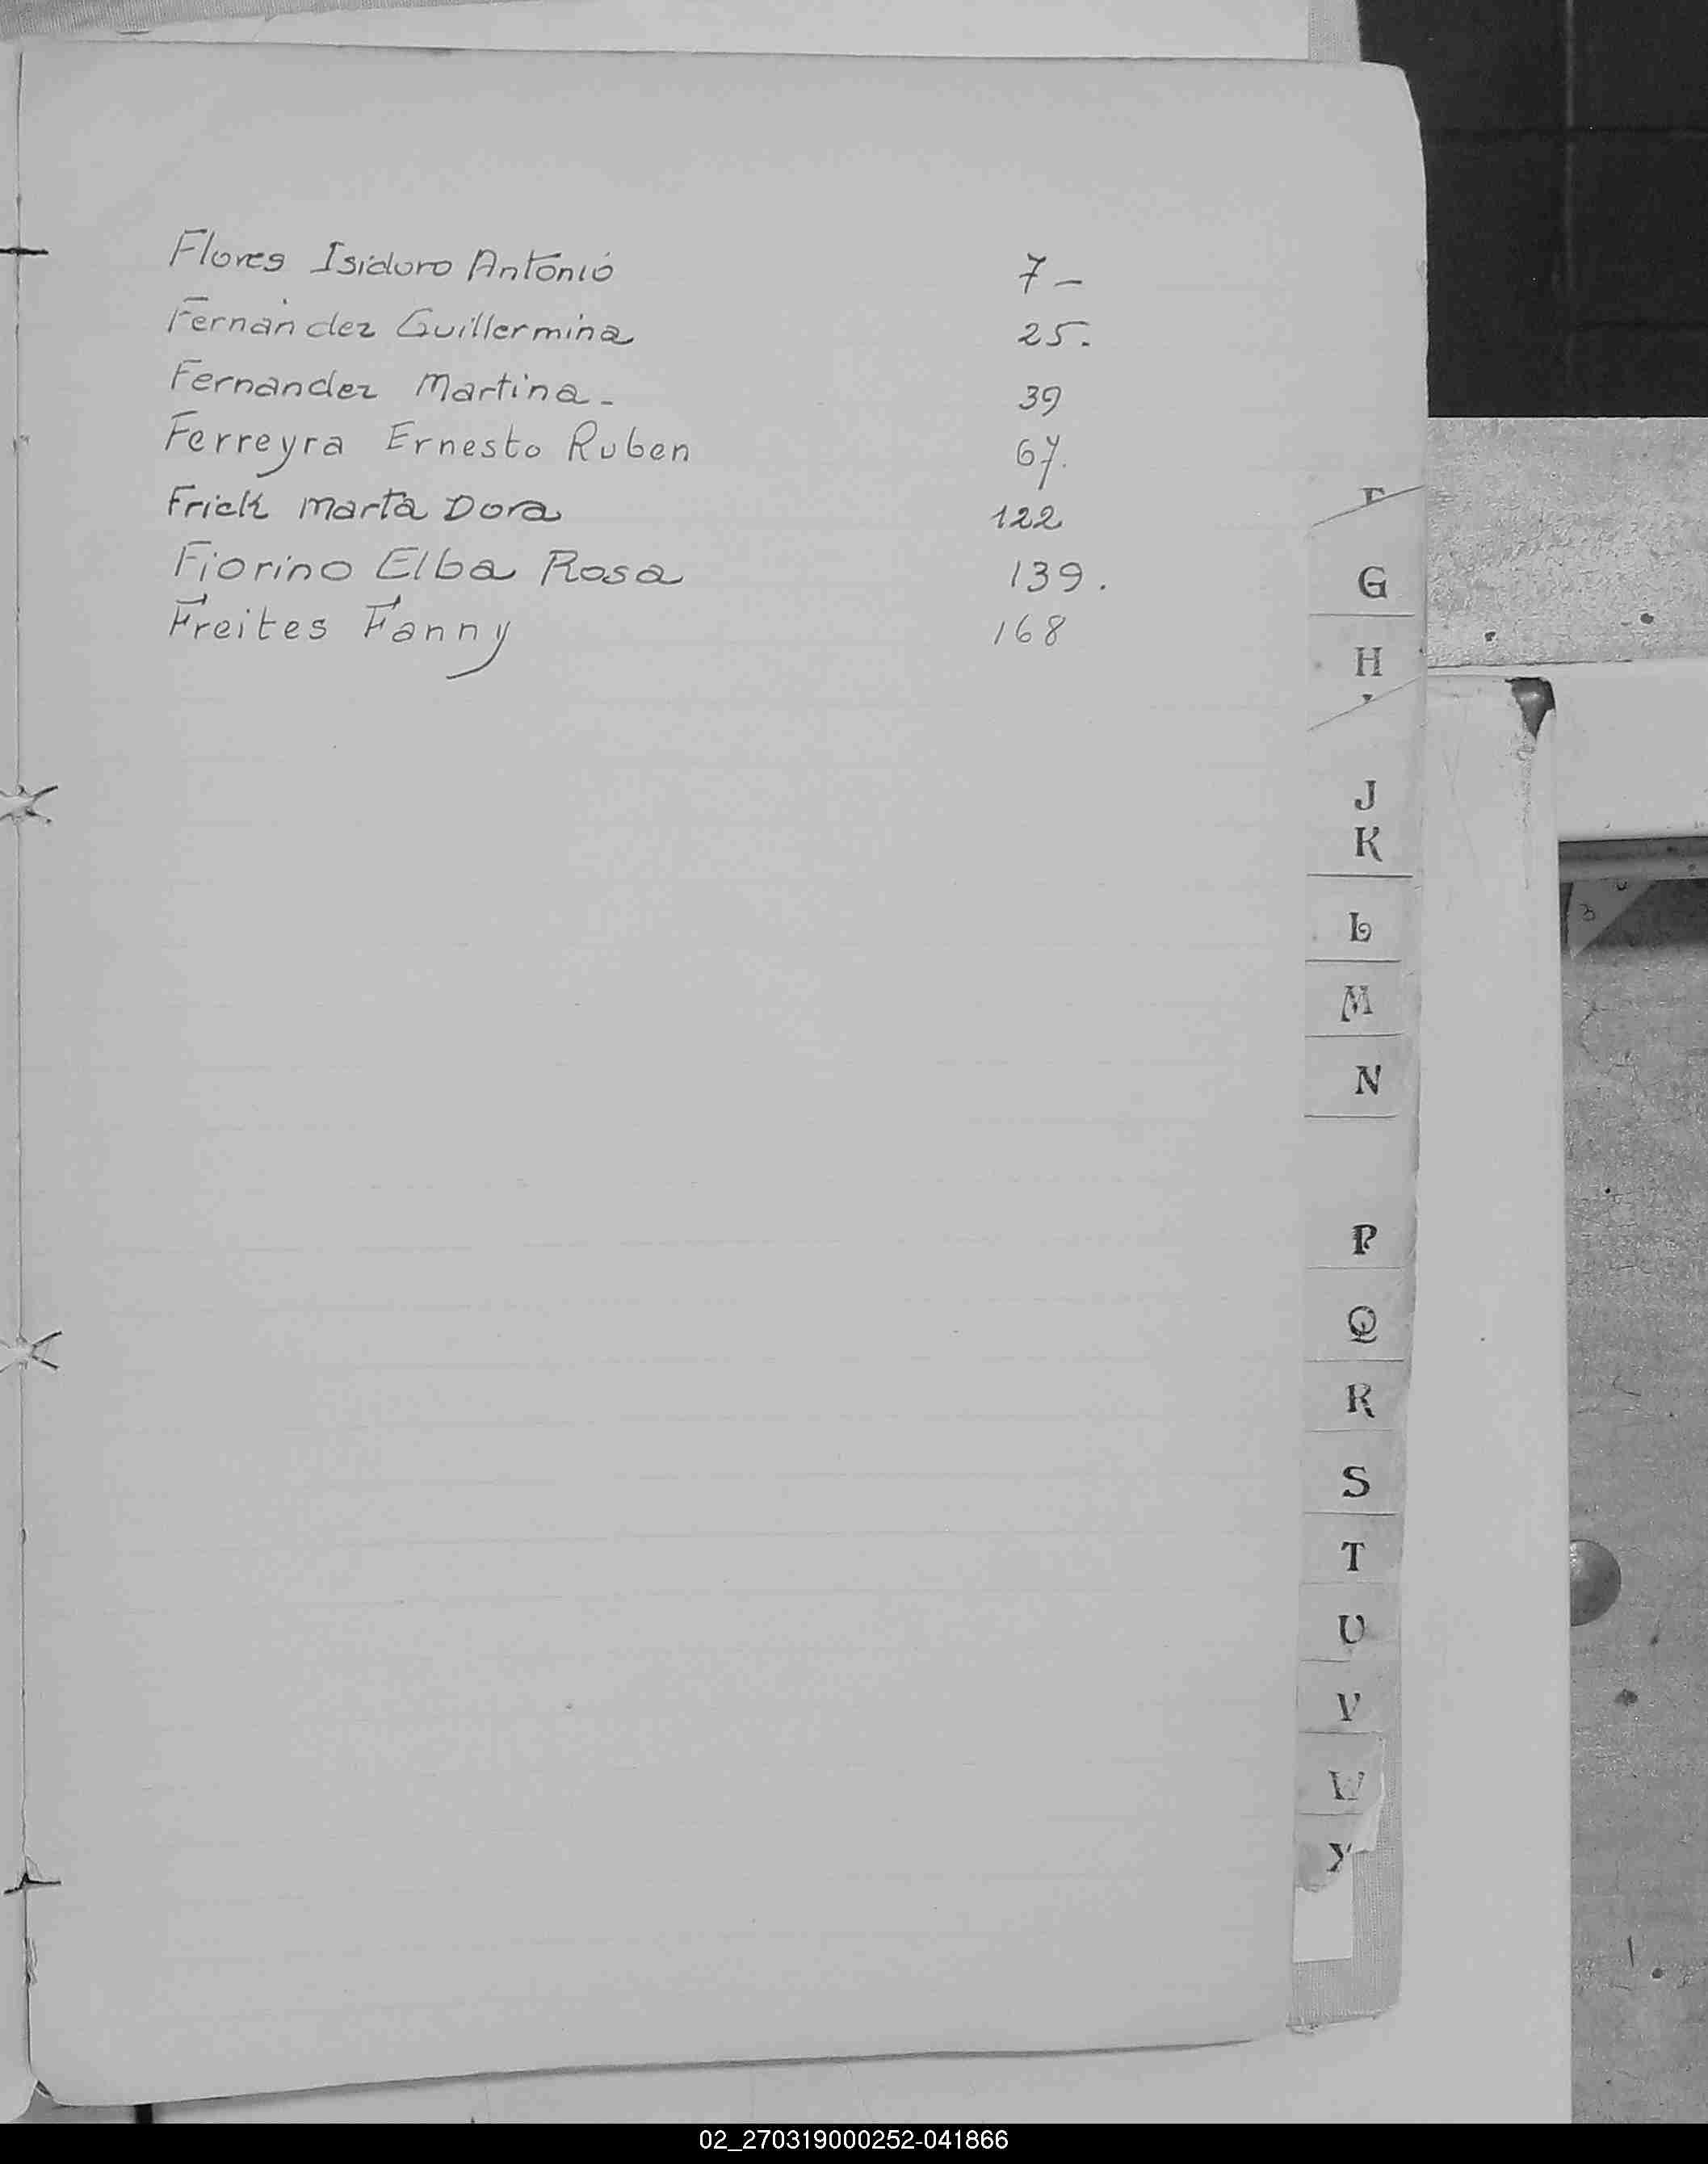 Flores Isidoro Antonio 7 -
Fernández Guillermina 25.
Fernandez Martina - 39
Ferreyra Ernesto Ruben 67.
Frick Marta Dora 122
Fiorino Elba Rosa 139.
Freites Fanny 168
G
H
J
K
L
M
N
P
Q
R
S
T
U
V
W
Y
02_270319000252-041866